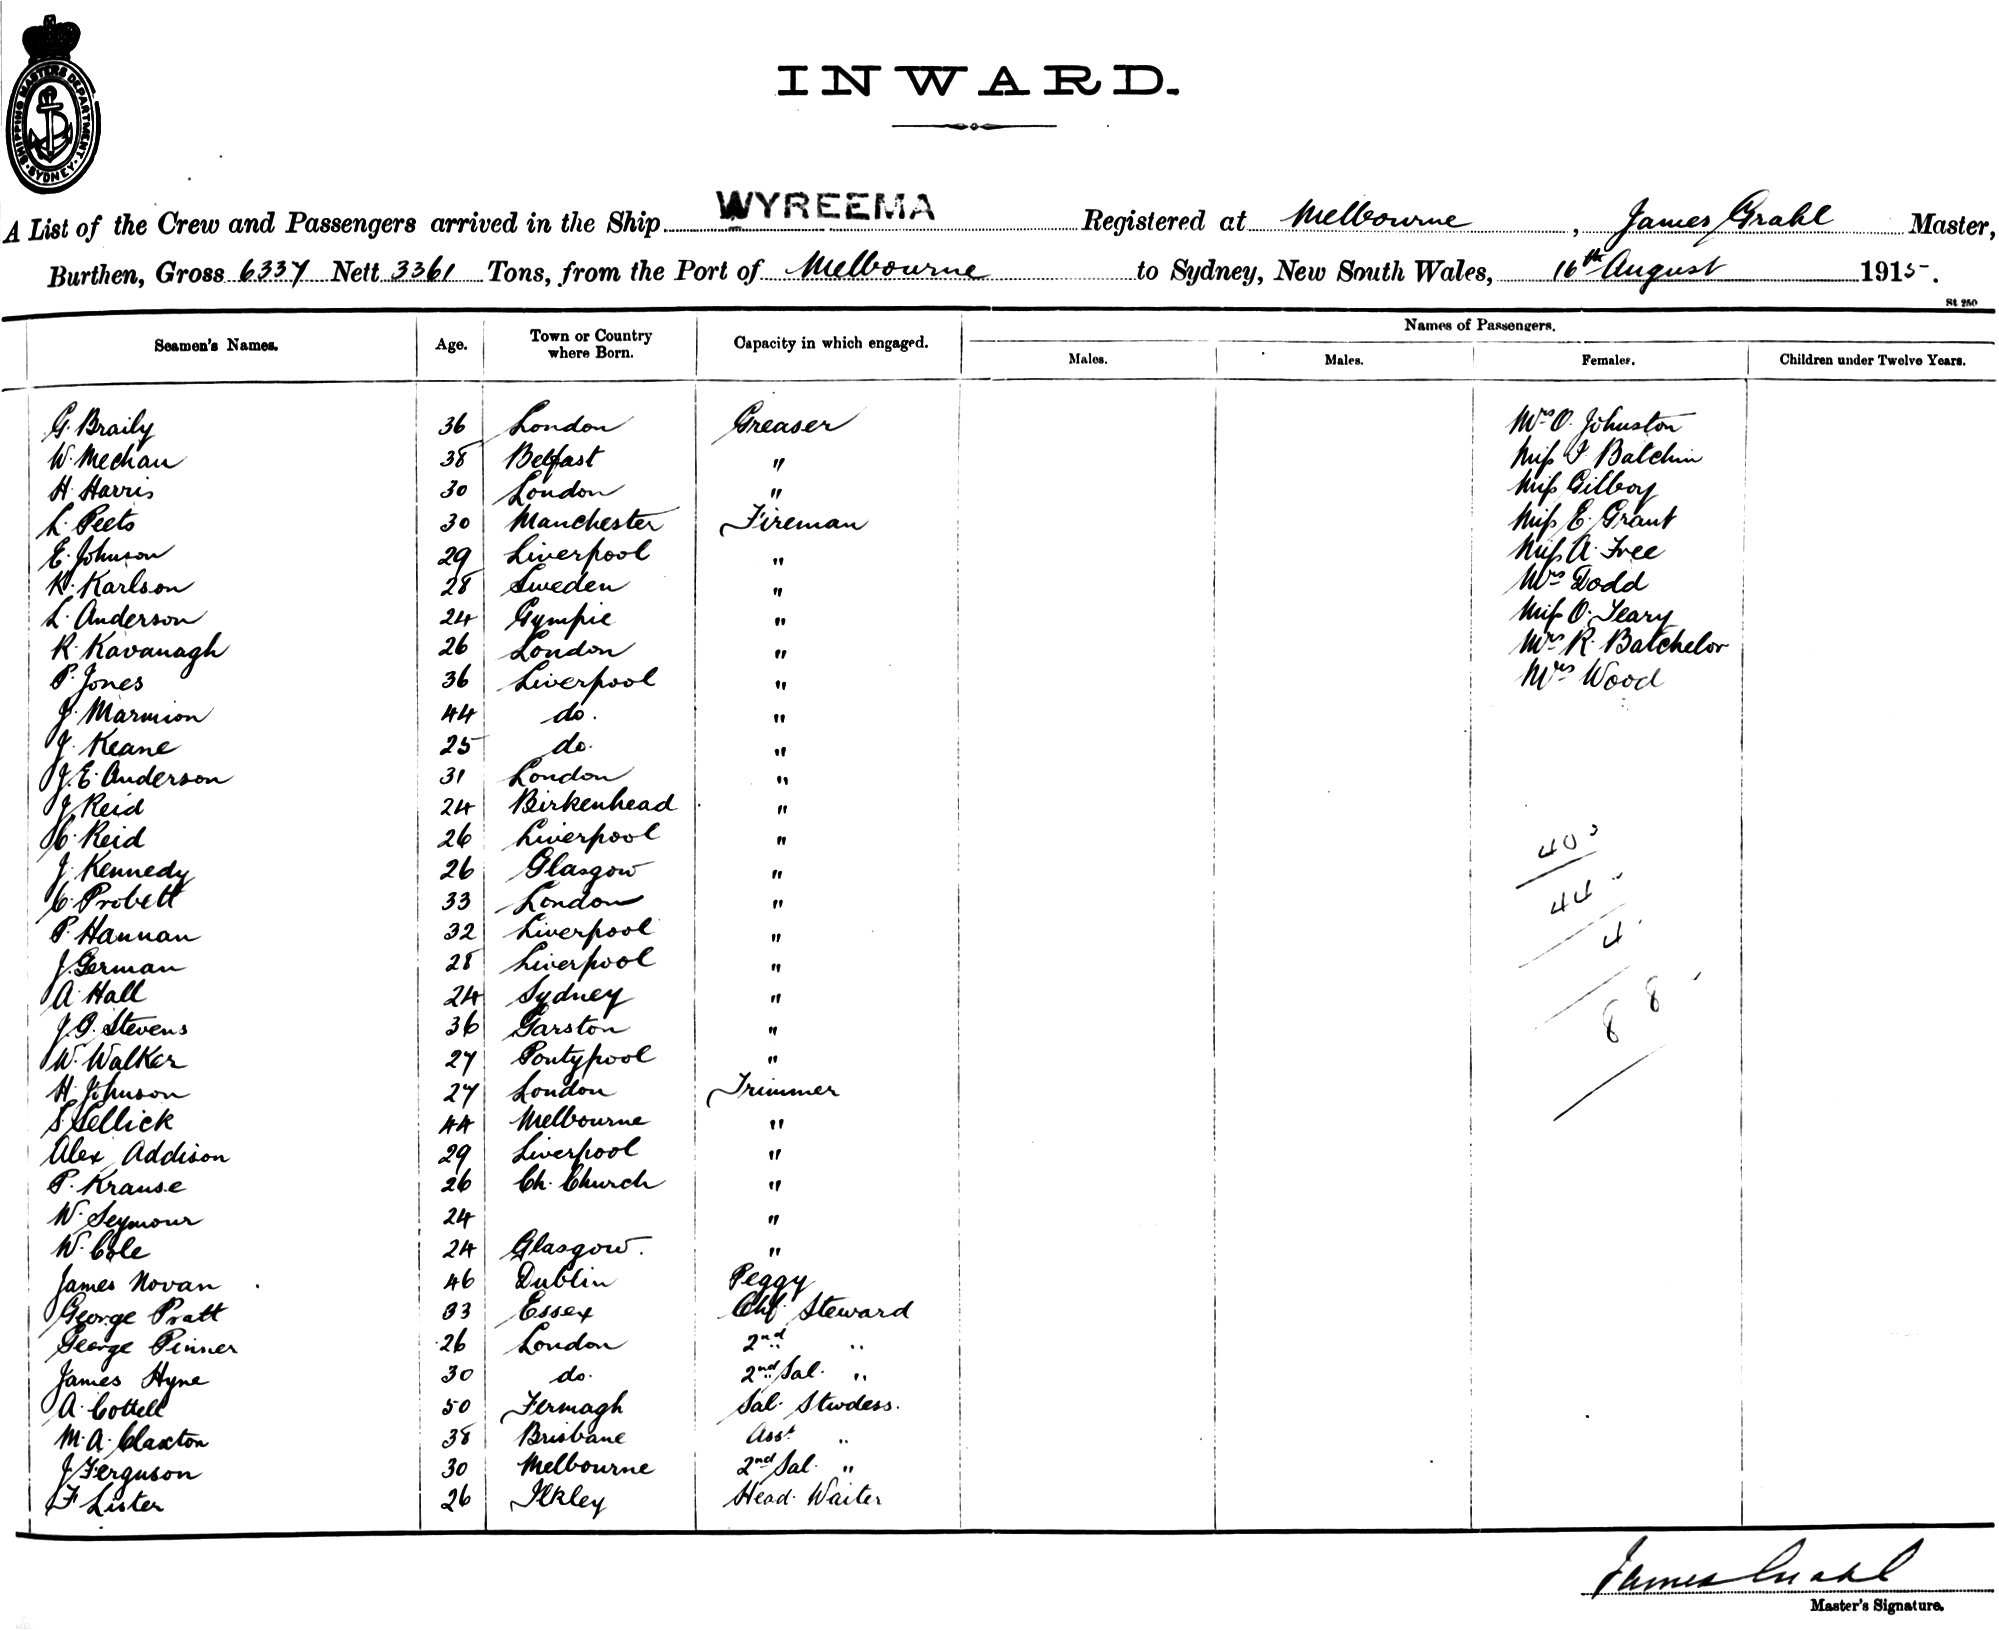 SHIPPING MASTERS DEPARTMENT. SYDNEY
INWARD.
A List of the Crew and Passengers arrived in the Ship WYREEMA Registered at Melbourne, James Grahl Master,
Burthen, Gross 6337 Nett 3361 Tons, from the Port of Melbourne to Sydney, New South Wales, 16th August 1915.
St 250
Seamen's Names. Age. Town or Country where Born. Capacity in which engaged. Names of Passengers.
Males. Males. Females. Children under Twelve Years.
G. Braily 36 London Greaser Mrs O. Johnston
W. Mechan 38 Belfast " Miss I Balchin
H. Harris 30 London " Miss Gilboy
L. Peets 30 Manchester Fireman Miss E. Grant
E. Johnson 29 Liverpool " Miss A. Free
K. Karlson 28 Sweden " Mrs Dodd
L. Anderson 24 Gympie " Miss O. Leary
R. Kavanagh 26 London " Mrs R. Batchelor
P. Jones 36 Liverpool " Mrs Wood
J. Marmion 44 do. "
J. Keane 25 do. "
J. E. Anderson 31 London "
J. Reid 24 Birkenhead "
C. Reid 26 Liverpool " 40
J. Kennedy 26 Glasgow "
C. Probett 33 London " 44
P. Hannan 32 Liverpool " 4
J. German 28 Liverpool "
A. Hall 24 Sydney " 88
J. G. Stevens 36 Garston "
W. Walker 27 Pontypool "
H. Johnson 27 London Trimmer
S. Sellick 44 Melbourne "
Alex Addison 29 Liverpool "
P. Krause 26 Ch. Church "
W. Seymour 24 "
W. Cole 24 Glasgow. "
James Novan 46 Dublin Peggy
George Pratt 33 Essex Chf. Steward
George Pinner 26 London 2nd "
James Hyne 30 do. 2nd Sal. "
A. Cottell 50 Fermagh Sal. Stwdess.
M. A. Claxton 38 Brisbane Asst "
J. Ferguson 30 Melbourne 2nd Sal. "
F Lister 26 Ilkley Head Waiter
James Grahl
Master's Signature.